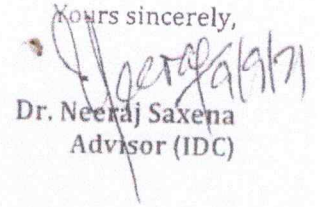 Yours sincerely,
Neeraj 9/9/21
Dr. Neeraj Saxena
Advisor (IDC)